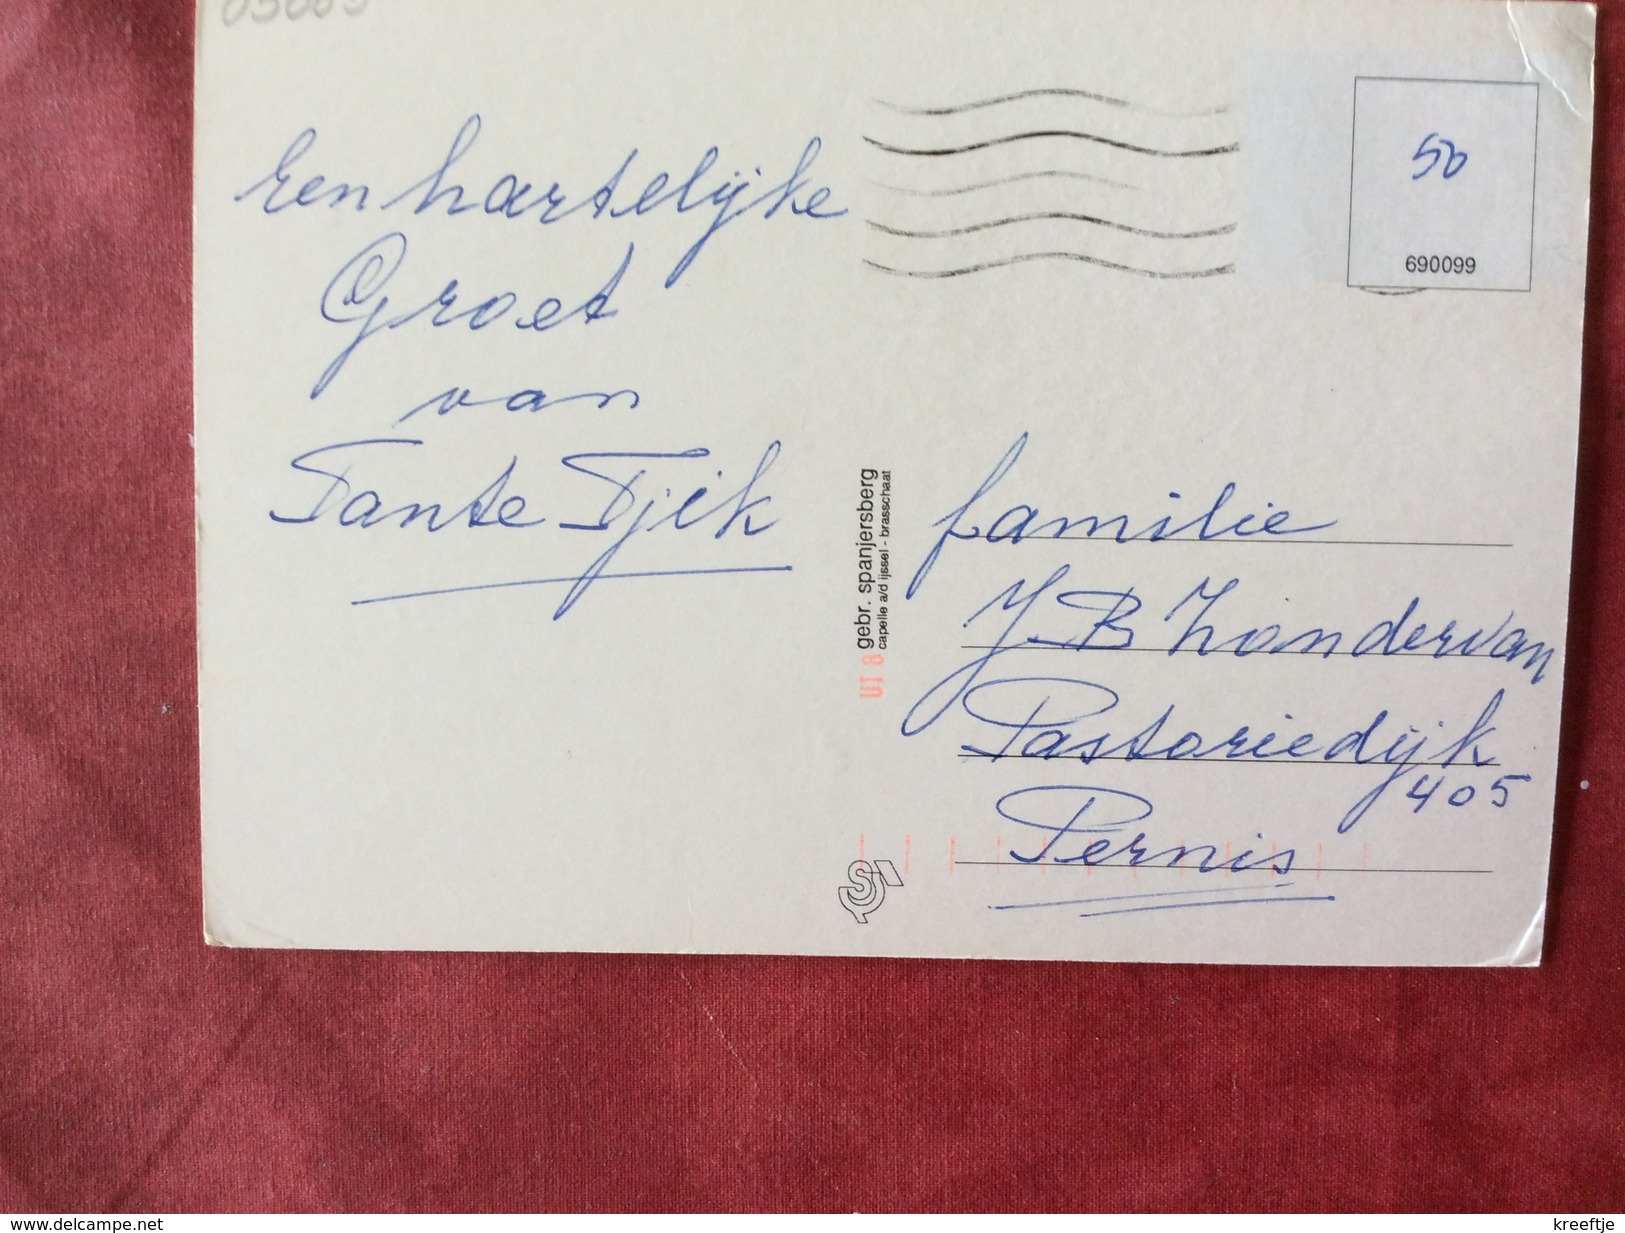 Een hartelijke
Groet
van
Tante Tjik
50
690099
gebr. spanjersberg
capelle a/d ijssel - brasschaat
UT 8
familie
J B Zondervan
Pastoriedijk
405
Pernis
www.delcampe.net
kreeftje